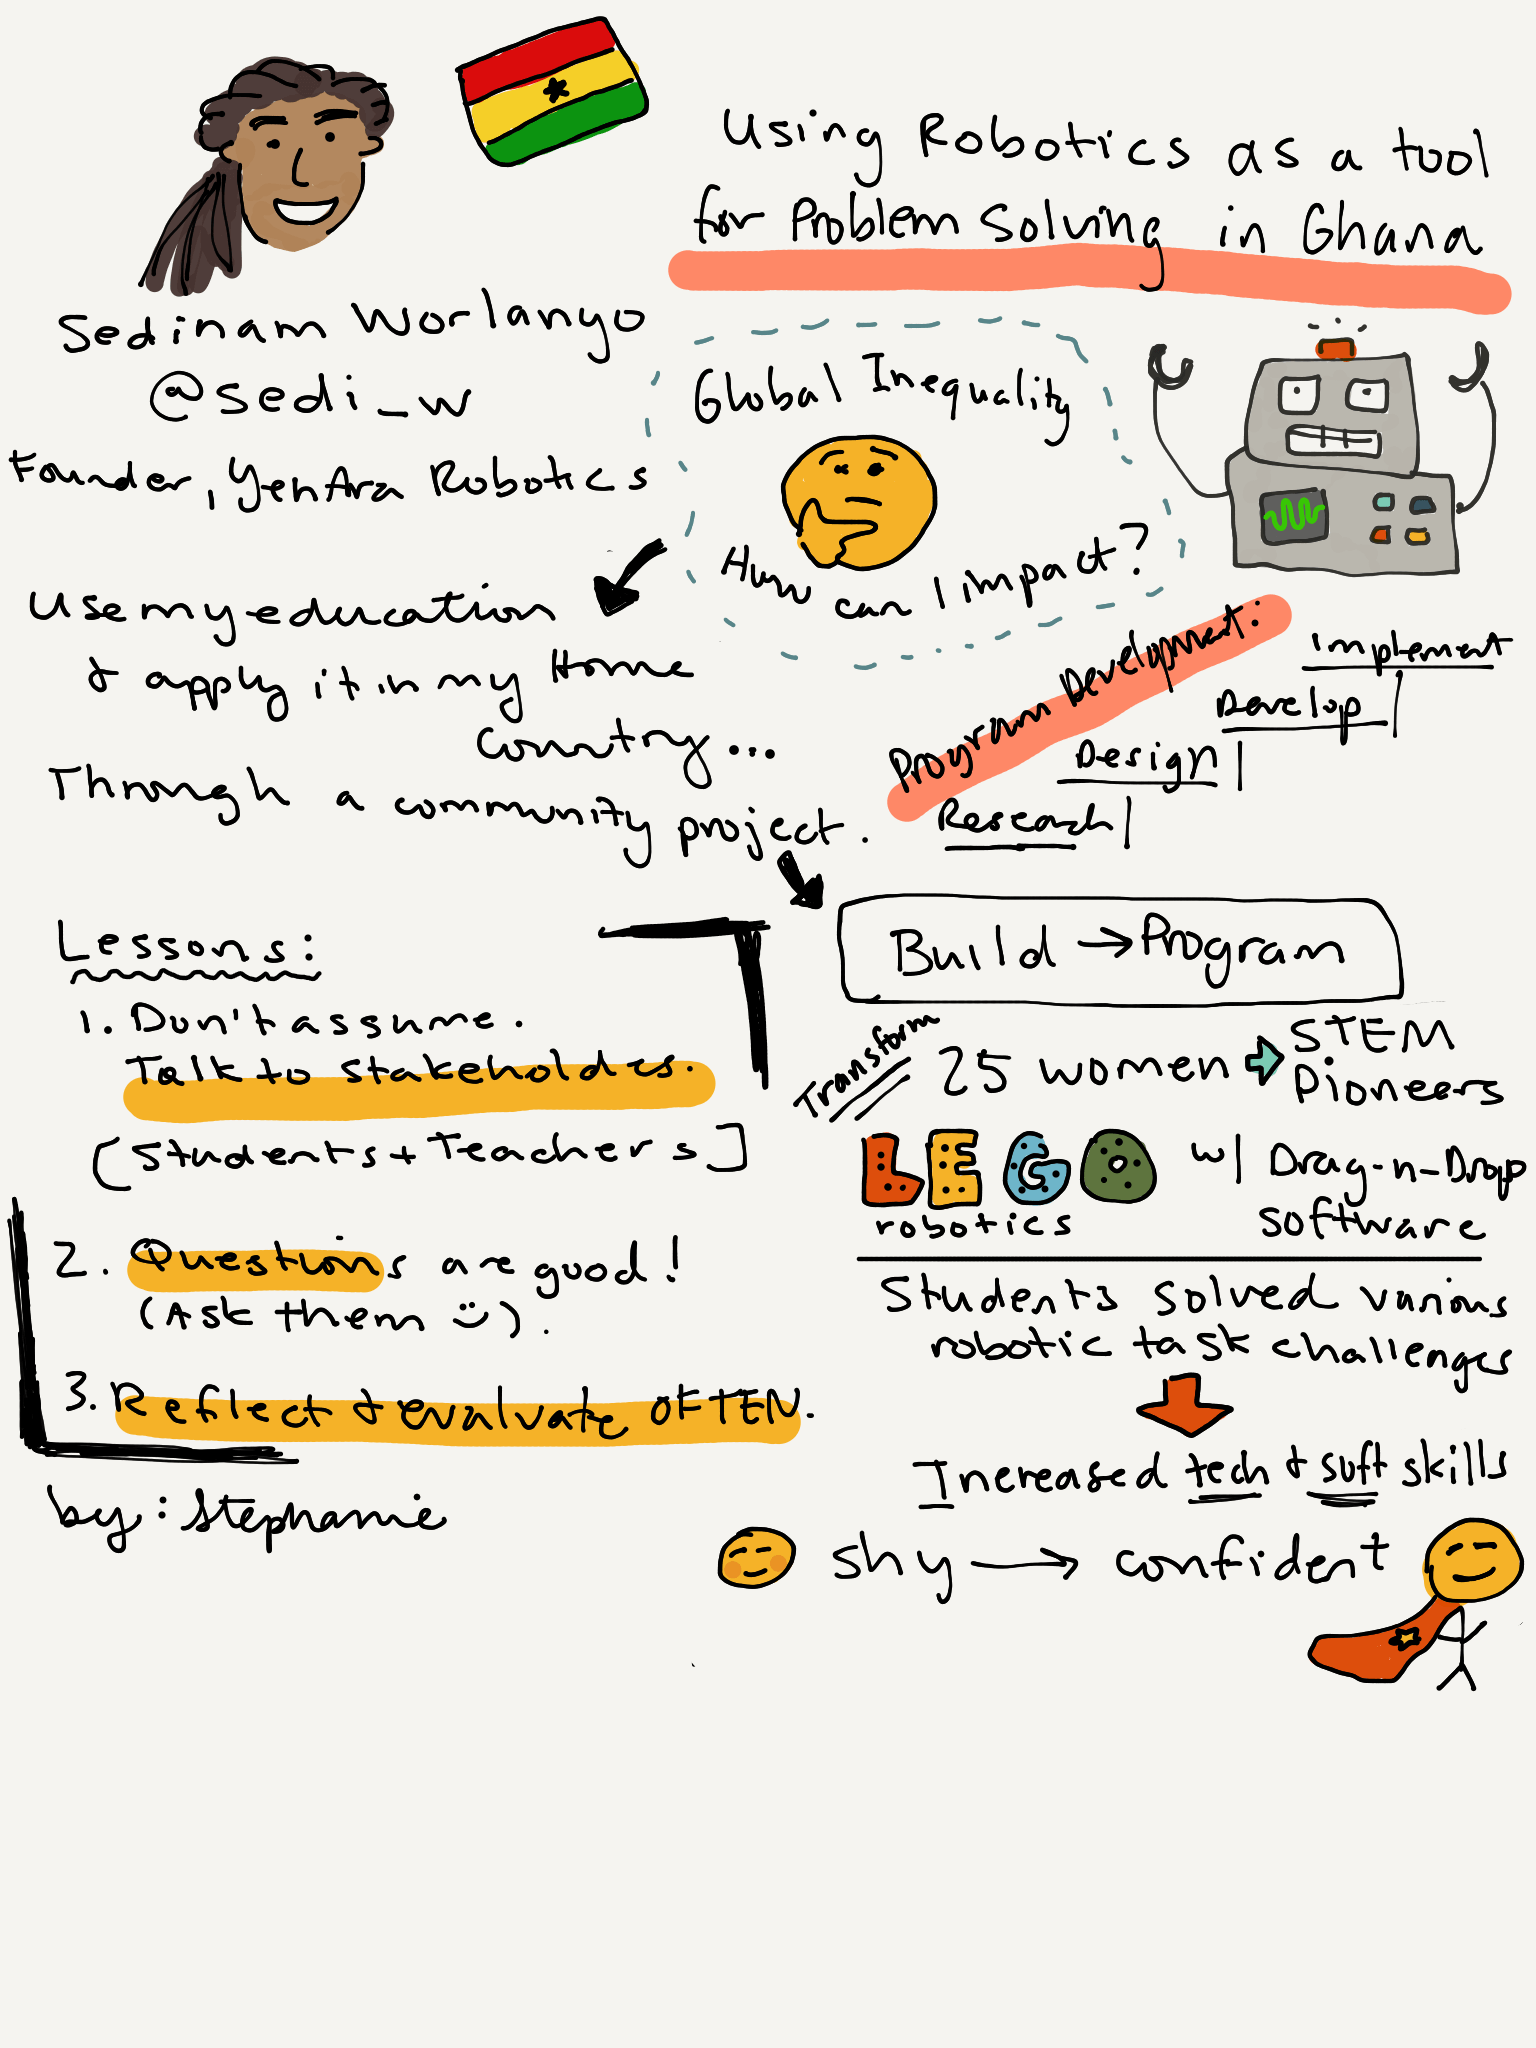 Using Robotics as a tool
for Problem Solving in Ghana
Sedinam Worlanyo
@sedi_w
Founder, YenAra Robotics
Global Inequality
How can I impact?
Use my education
& apply it in my Home
Country...
Through a community project.
Program Development:
Implement
Develop
Design
Research
Build → Program
Transform
25 women
STEM
Pioneers
LEGO
robotics
w/ Drag-n-Drop
software
Students solved various
robotic task challenges
Increased tech & soft skills
shy → confident
Lessons:
1. Don't assume.
Talk to stakeholdes.
[Students + Teachers]
2. Questions are good!
(Ask them :)).
3. Reflect & evalvate OFTEN.
by: Stephanie